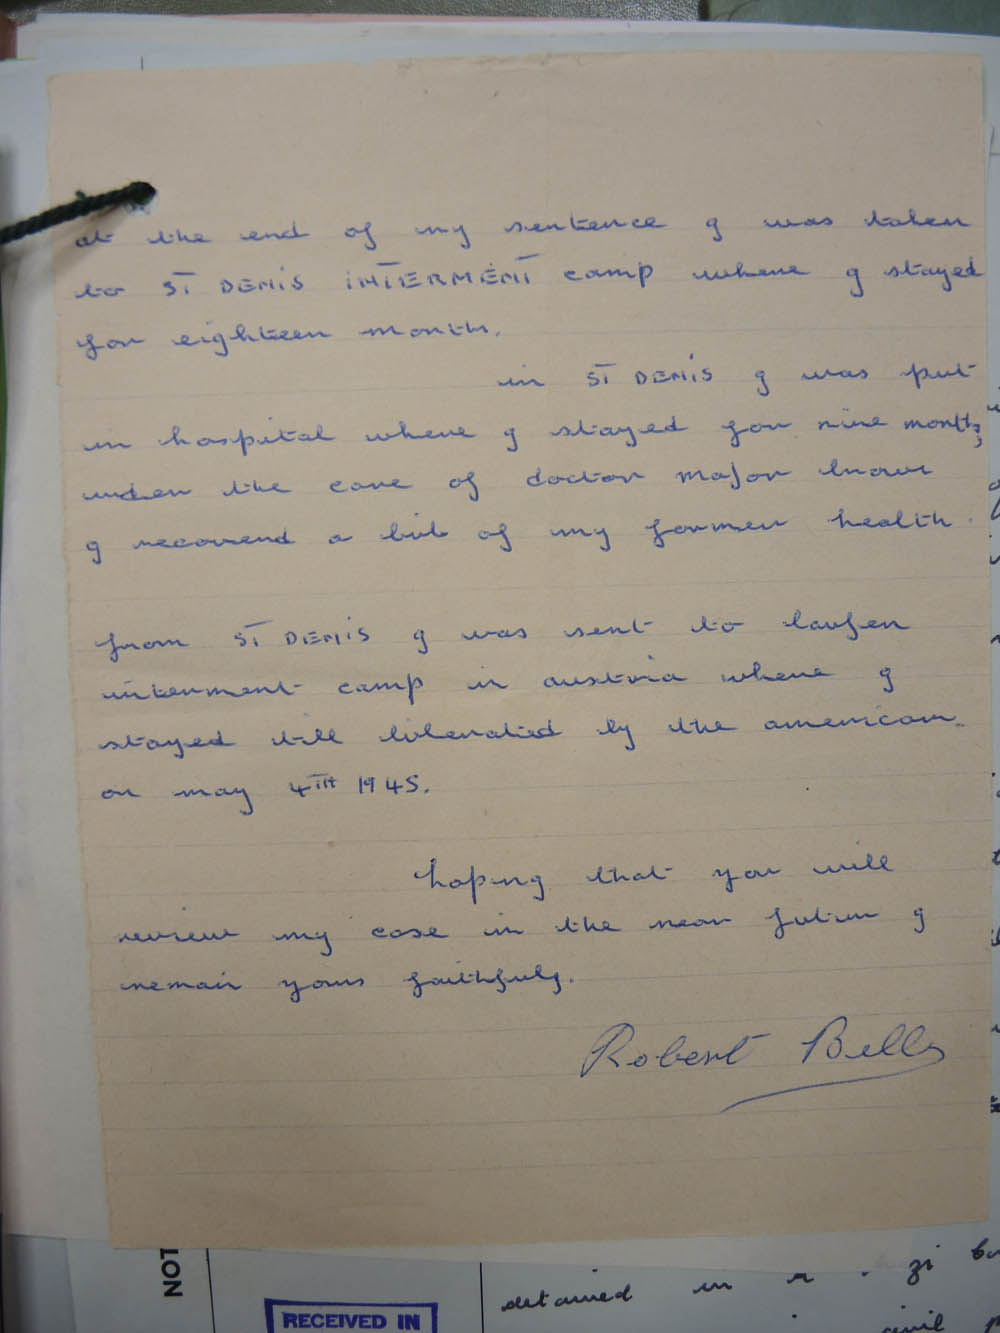 at the end of my sentence I was taken
to ST DENIS INTERMENT camp where I stayed
for eighteen month.
in ST DENIS I was put
in hospital where I stayed for nine months
under the care of doctor major
I a bit of my former health.
from ST DENIS I was sent to laufen
interment camp in austria where I
stayed till liberated by the american.
on may 4TH 1945.
hoping that you will
review my case in the near futur I
remain yours faithfuly.
Robert
NOT
RECEIVED IN
detained in
civil